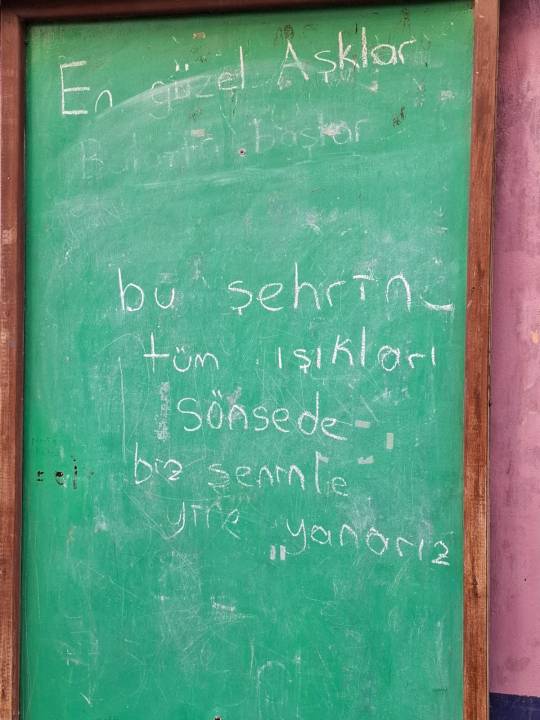 En güzel Aşklar
başlar
bu şehrin
tüm ışıkları
sönsede
biz senınle
yine yanarız